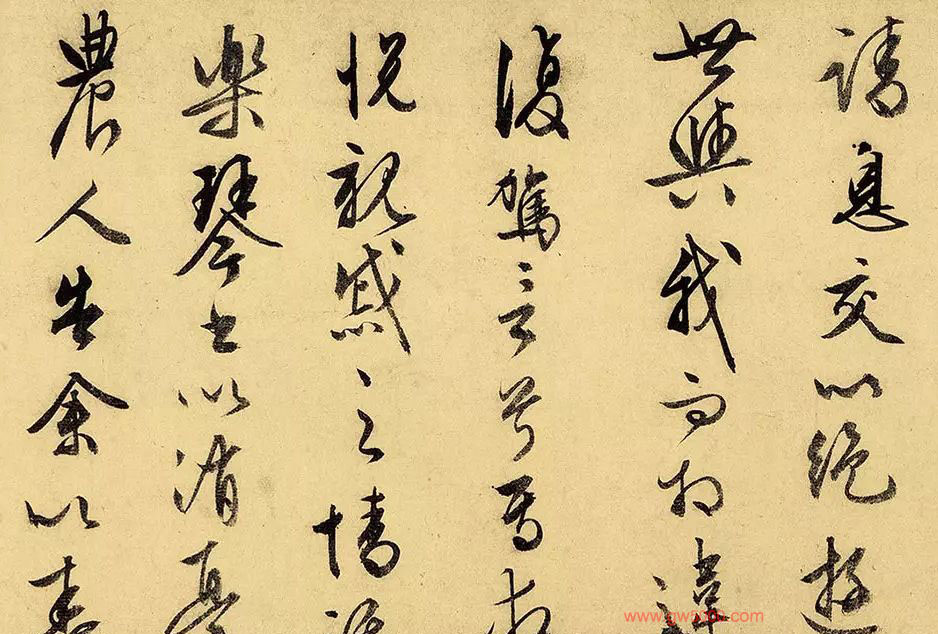 請息交以絕遊
世與我而相違
復駕言兮焉求
悅親慼之情話
樂琴書以消憂
農人告余以春